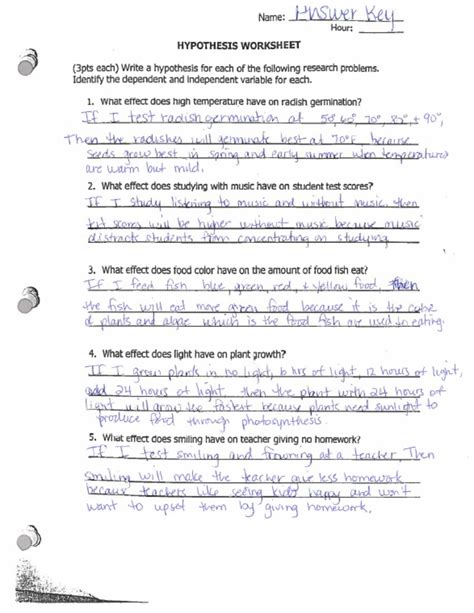 Name: Answer Key
Hour:
HYPOTHESIS WORKSHEET
(3pts each) Write a hypothesis for each of the following research problems.
Identify the dependent and independent variable for each.
1. What effect does high temperature have on radish germination?
If I test radish germination at 50, 60, 70°, 85°, + 90°,
Then the radishes will germinate best at 70°F, because
seeds grow best in spring and early summer when temperatures
are warm but mild.
2. What effect does studying with music have on student test scores?
If I study listening to music and without music, then
test scores will be higher without music because music
distracts students from concentrating on studying
3. What effect does food color have on the amount of food fish eat?
If I feed fish blue, green, red, + yellow food, then
the fish will eat more green food because it is the color
of plants and algae which is the food fish are used to eating.
4. What effect does light have on plant growth?
If I grow plants in no light, 6 hrs of light, 12 hours of light,
and 24 hours of light then the plant with 24 hours of
light will grow the fastest because plants need sunlight to
produce food through photosynthesis.
5. What effect does smiling have on teacher giving no homework?
If I test smiling and frowning at a teacher, Then
smiling will make the teacher give less homework
because teachers like seeing kids happy and won't
want to upset them by giving homework.